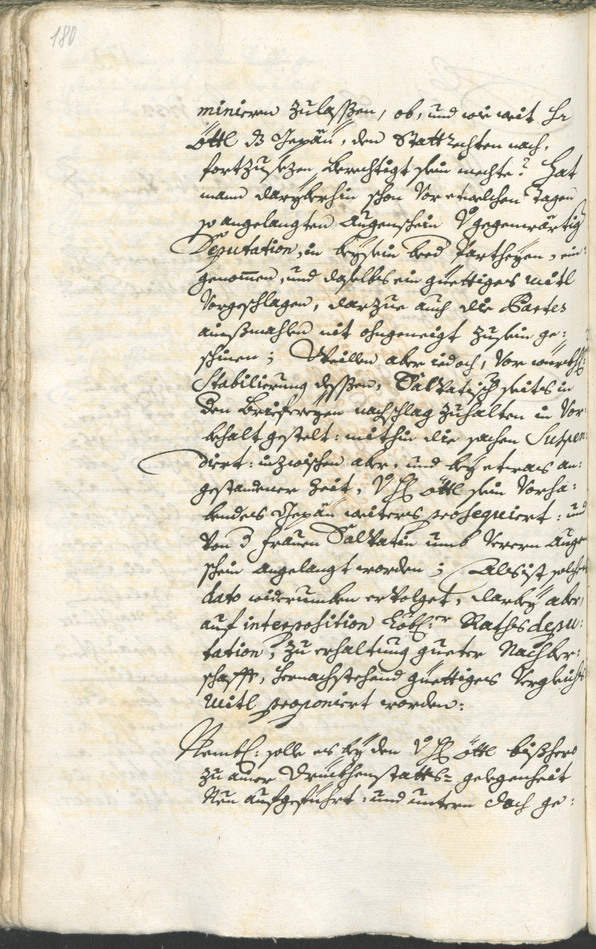 180
minieren zulassßen, ob, und wie weit Hr
Öttl ds Gepäu, den Stattrechten nach,
fortzusezen, berechtigt sein mechte? Hat
mann dariberhin schon vor etwelchen tagen
so angelangten Augenschein gegenwärtig
Deputation, in beysein beed Partheyen, ein
genomen, und daselbst ein güettiges mitl
vorgeschlagen, darzue auch die Partes
ainßmahlen nit ohngeneigt zusein ge:
schinen; Weillen aber iedoch, vor
Stabilierung dessen, Salvatisch seits in
den Briefereyen nachschlag zuhalten in Vor
behalt gestelt: mithin die sachen Suspen
diert: inzwischen aber, und bey etwas an:
gestandener Zeit, Öttl sein Vorha:
bendes Gepäu weiters prosequiert: und
von d Frauen Salvatin umb verern Augen
schein angelangt worden; Als ist solcher
dato widerumben ervolget, darbey aber,
auf interposition Löbl:r Rathsdepu:
tation, zu erhaltung gueter Nachber:
schafft, hernachstehend güettiges Vergleichs
mitl proponiert worden:
Nembl: solle es bey den Öttl bißhero
zu ainer statts= gelegenheit
Neu aufgeführt: und untern Dach ge: